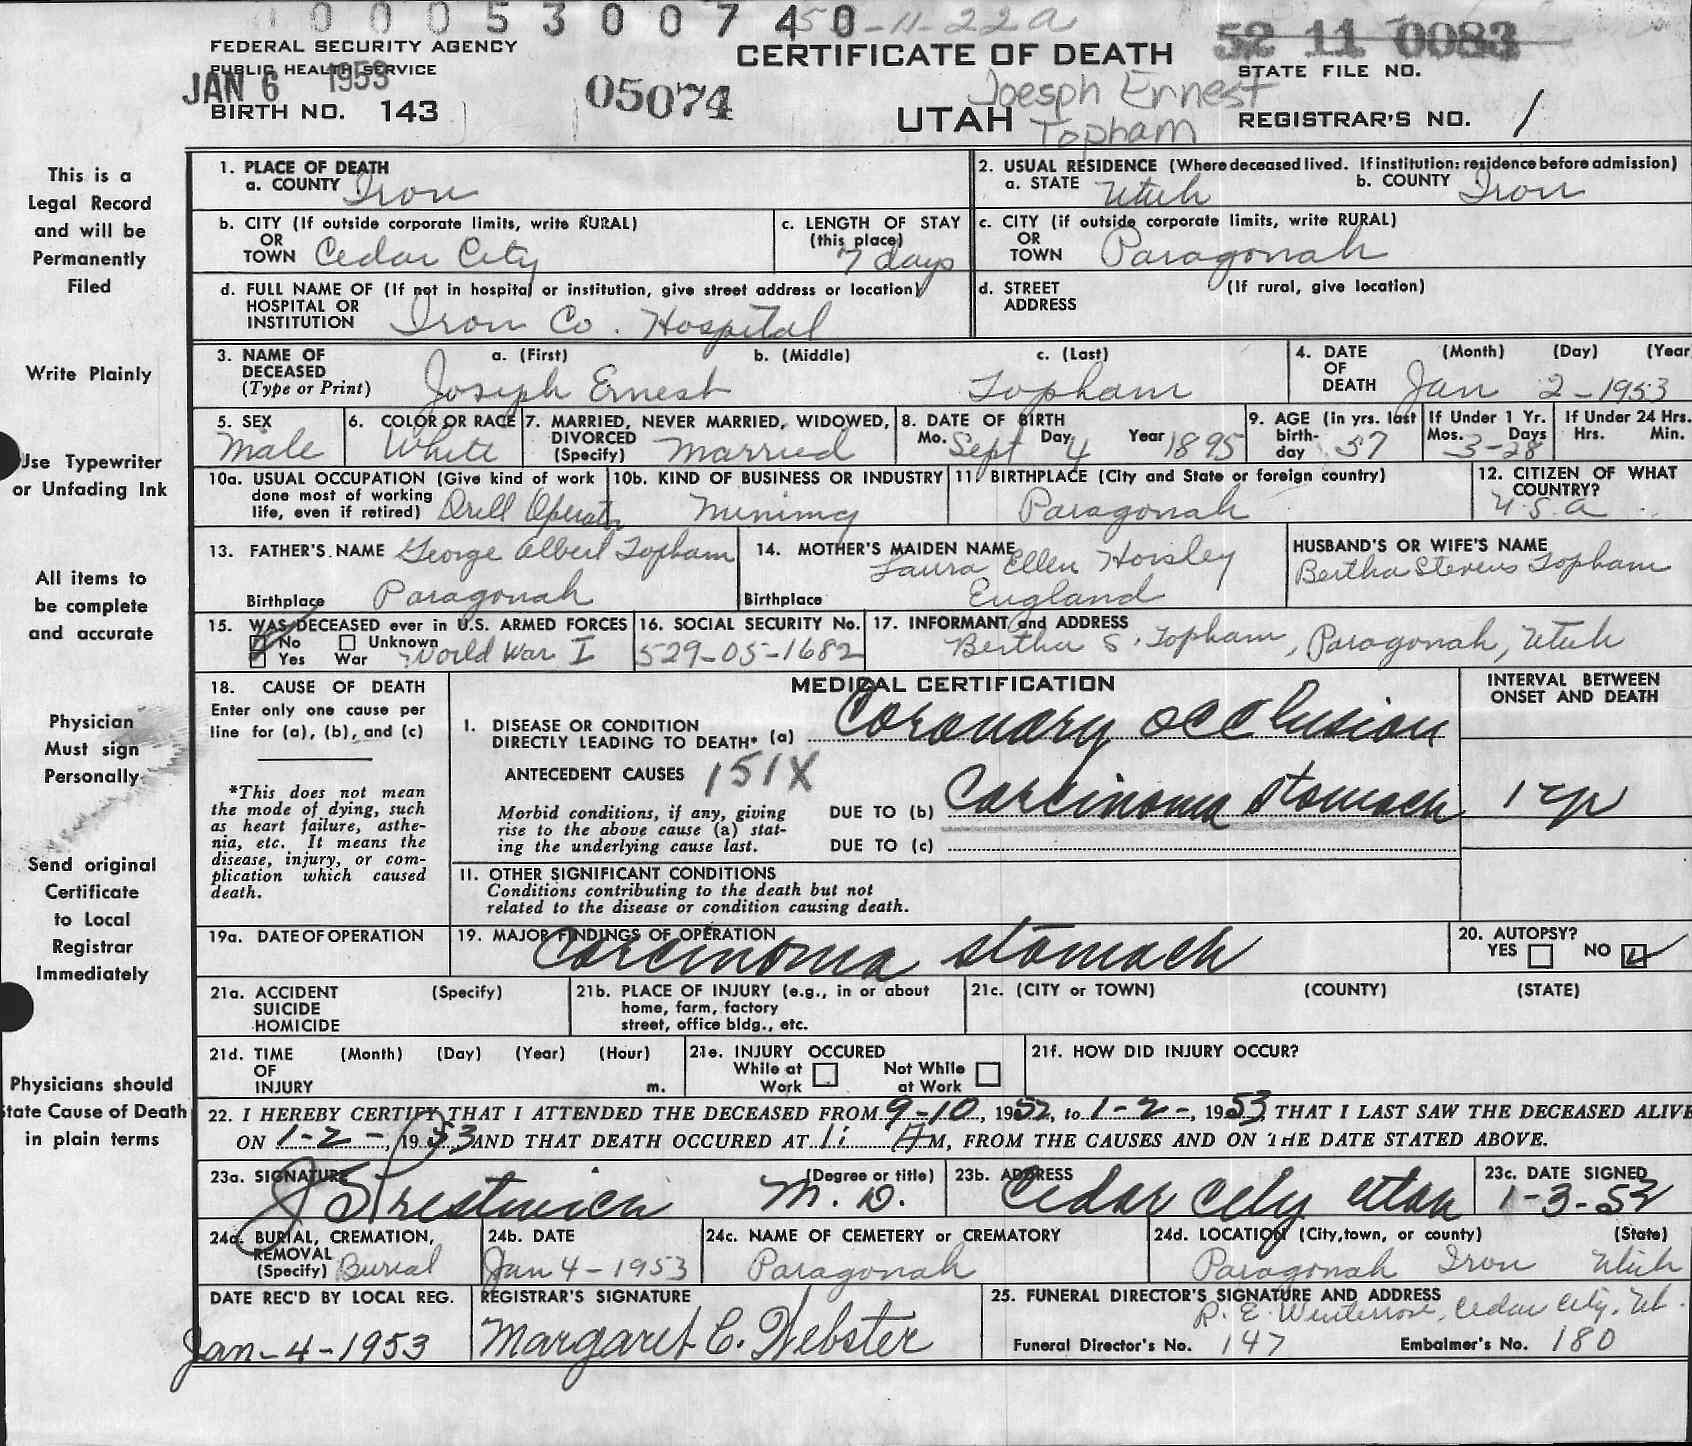 0 0 0 5 3 0 0 7 4 0
50-11-22a
52 11 0083
FEDERAL SECURITY AGENCY
PUBLIC HEALTH SERVICE
JAN 6 1953
BIRTH NO. 143
05074
CERTIFICATE OF DEATH
UTAH
Joesph Ernest
Topham
STATE FILE NO.
REGISTRAR'S NO. 1
This is a
Legal Record
and will be
Permanently
Filed
Write Plainly
Use Typewriter
or Unfading Ink
All items to
be complete
and accurate
Physician
Must sign
Personally
Send original
Certificate
to Local
Registrar
Immediately
Physicians should
State Cause of Death
in plain terms
1. PLACE OF DEATH
a. COUNTY Iron
2. USUAL RESIDENCE (Where deceased lived. If institution: residence before admission)
a. STATE Utah b. COUNTY Iron
b. CITY (If outside corporate limits, write RURAL)
OR
TOWN Cedar City
c. LENGTH OF STAY
(this place)
7 days
c. CITY (if outside corporate limits, write RURAL)
OR
TOWN Paragonah
d. FULL NAME OF (If not in hospital or institution, give street address or location)
HOSPITAL OR
INSTITUTION Iron Co. Hospital
d. STREET (If rural, give location)
ADDRESS
3. NAME OF a. (First) b. (Middle) c. (Last)
DECEASED
(Type or Print) Joseph Ernest Topham
4. DATE (Month) (Day) (Year
OF
DEATH Jan 2-1953
5. SEX
Male
6. COLOR OR RACE
White
7. MARRIED, NEVER MARRIED, WIDOWED,
DIVORCED
(Specify) Married
8. DATE OF BIRTH
Mo. Sept Day 4 Year 1895
9. AGE (in yrs. last
birth-
day 57
If Under 1 Yr.
Mos. Days
3-28
If Under 24 Hrs.
Hrs. Min.
10a. USUAL OCCUPATION (Give kind of work
done most of working
life, even if retired) Drill Operator
10b. KIND OF BUSINESS OR INDUSTRY
Mining
11. BIRTHPLACE (City and State or foreign country)
Paragonah
12. CITIZEN OF WHAT
COUNTRY?
U.S.A
13. FATHER'S NAME George Albert Topham
Birthplace Paragonah
14. MOTHER'S MAIDEN NAME
Laura Ellen Horsley
Birthplace England
HUSBAND'S OR WIFE'S NAME
Bertha Stevens Topham
15. WAS DECEASED ever in U.S. ARMED FORCES
No Unknown
Yes War World War I
16. SOCIAL SECURITY No.
529-05-1682
17. INFORMANT and ADDRESS
Bertha S. Topham, Paragonah, Utah
18. CAUSE OF DEATH
Enter only one cause per
line for (a), (b), and (c)
*This does not mean
the mode of dying, such
as heart failure, asthe-
nia, etc. It means the
disease, injury, or com-
plication which caused
death.
MEDICAL CERTIFICATION
INTERVAL BETWEEN
ONSET AND DEATH
I. DISEASE OR CONDITION
DIRECTLY LEADING TO DEATH* (a) Coronary occlusion
ANTECEDENT CAUSES 151X
Morbid conditions, if any, giving
rise to the above cause (a) stat-
ing the underlying cause last.
DUE TO (b) Carcinoma stomach
DUE TO (c)
II. OTHER SIGNIFICANT CONDITIONS
Conditions contributing to the death but not
related to the disease or condition causing death.
19a. DATE OF OPERATION
19. MAJOR FINDINGS OF OPERATION
Carcinoma stomach
20. AUTOPSY?
YES NO
21a. ACCIDENT (Specify)
SUICIDE
HOMICIDE
21b. PLACE OF INJURY (e.g., in or about
home, farm, factory
street, office bldg., etc.
21c. (CITY or TOWN) (COUNTY) (STATE)
21d. TIME (Month) (Day) (Year) (Hour)
OF
INJURY m.
21e. INJURY OCCURED
While at Not While
Work at Work
21f. HOW DID INJURY OCCUR?
22. I HEREBY CERTIFY THAT I ATTENDED THE DECEASED FROM 9-10, 1952, to 1-2-, 1953 THAT I LAST SAW THE DECEASED ALIVE
ON 1-2-, 1953 AND THAT DEATH OCCURED AT AM, FROM THE CAUSES AND ON THE DATE STATED ABOVE.
23a. SIGNATURE (Degree or title)
M. D.
23b. ADDRESS
Cedar City Utah
23c. DATE SIGNED
1-3-53
24a. BURIAL, CREMATION,
REMOVAL
(Specify) Burial
24b. DATE
Jan 4-1953
24c. NAME OF CEMETERY or CREMATORY
Paragonah
24d. LOCATION (City, town, or county) (State)
Paragonah Iron Utah
DATE REC'D BY LOCAL REG.
Jan-4-1953
REGISTRAR'S SIGNATURE
Margaret C. Webster
25. FUNERAL DIRECTOR'S SIGNATURE AND ADDRESS
R. E. Winterrose, Cedar City, Ut.
Funeral Director's No. 147 Embalmer's No. 180